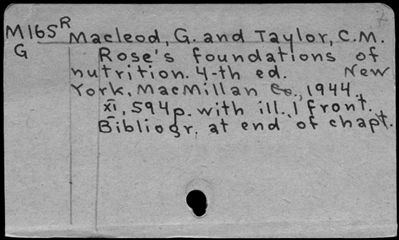 M165R Macleod, G. and Taylor, C.M.
G Rose's foundations of
nutrition. 4-th ed. New
York, MacMillan Co., 1944.
XI, 594p. with ill., 1 front.
Bibliogr. at end of chapt.